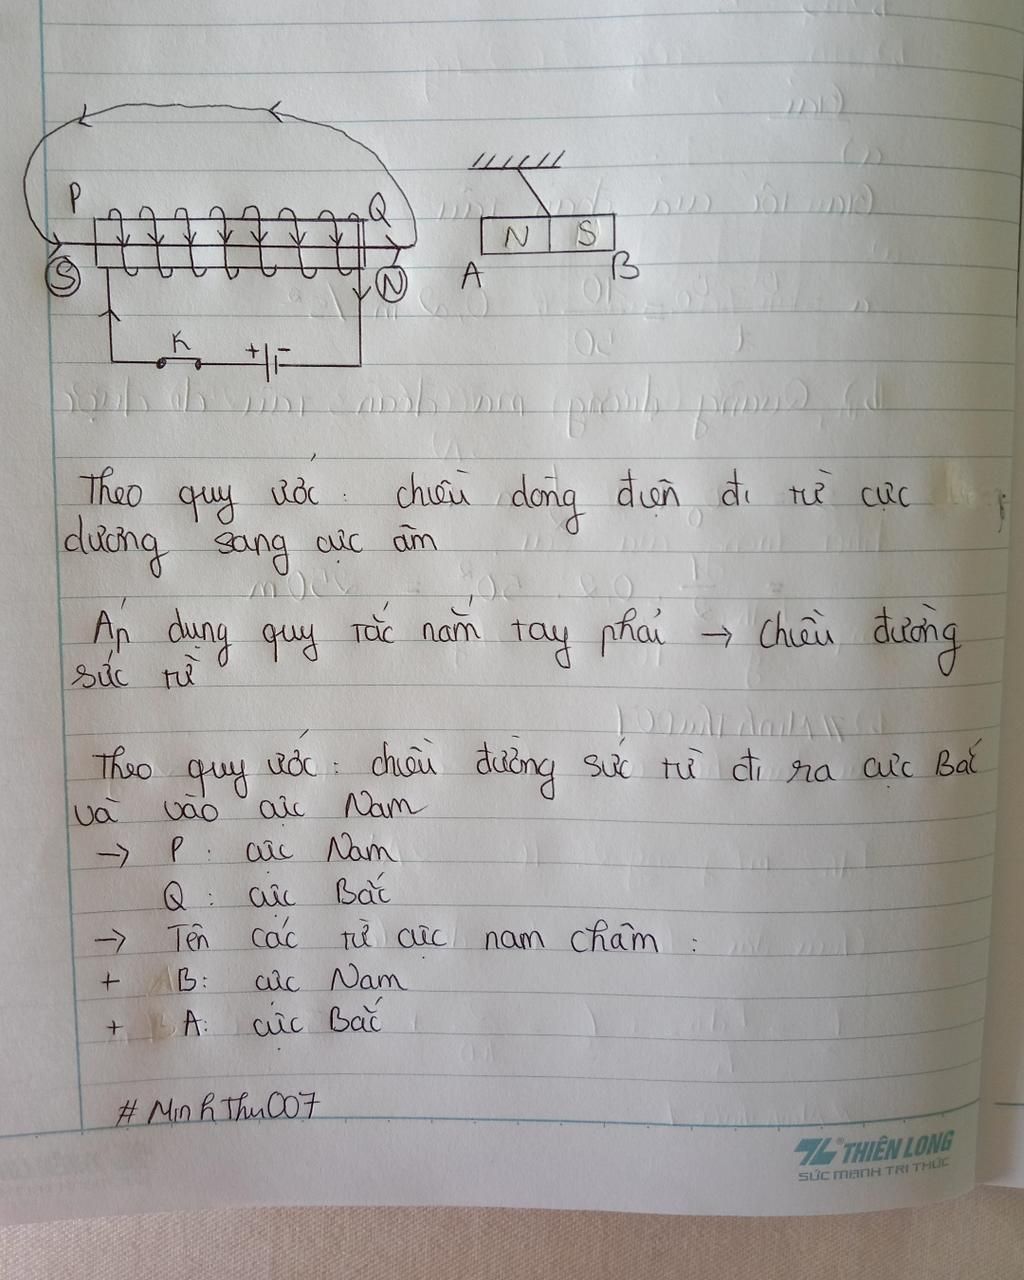 P
Q
N
S
S
N
A
B
K
+
-
Theo quy ước: chiều dòng điện đi từ cực
dương sang cực âm
Áp dụng quy tắc nắm tay phải → chiều đường
sức từ
Theo quy ước: chiều đường sức từ đi ra cực Bắc
và vào cực Nam
→ P: cực Nam
Q: cực Bắc
→ Tên các từ cực nam châm:
+ B: cực Nam
+ A: cực Bắc
# MinhThu007
THIÊN LONG
SỨC MẠNH TRI THỨC